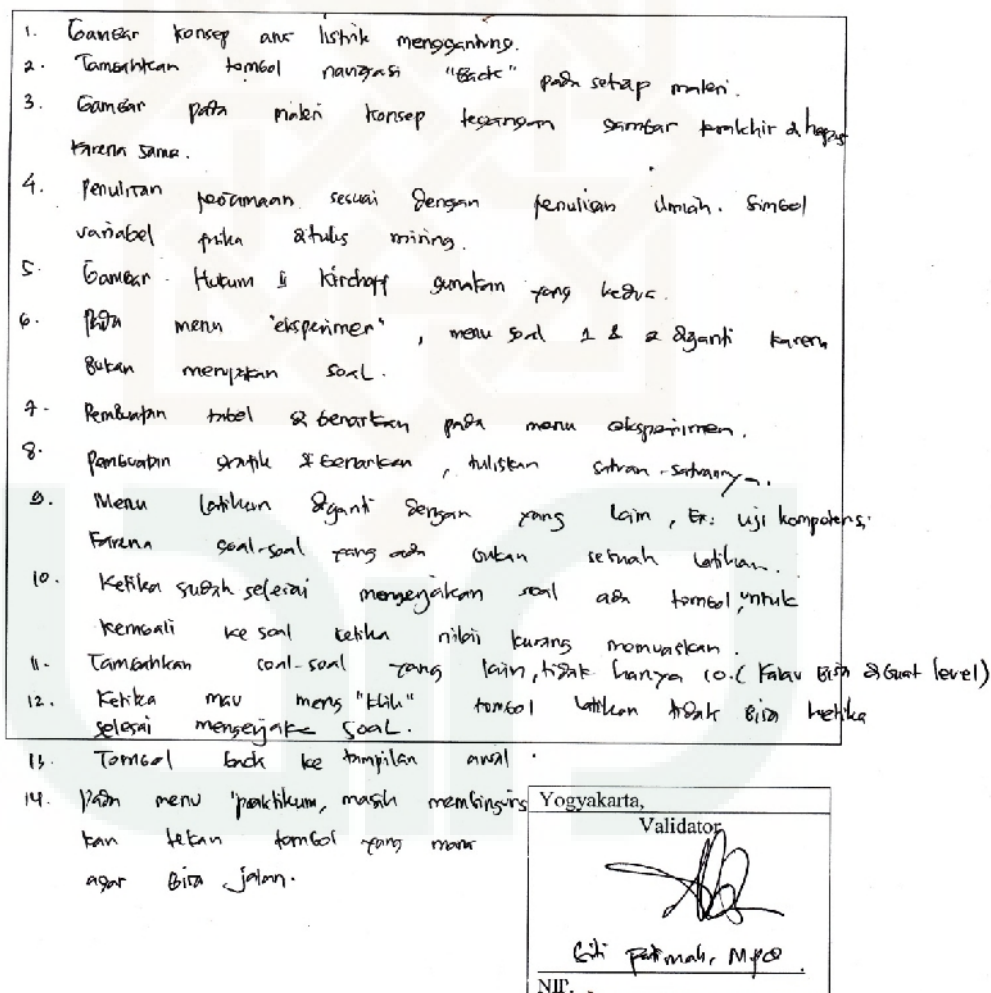 1. Gambar konsep arus listrik menggantung.
2. Tambahkan tombol navigasi "Back" pada setiap materi.
3. Gambar pada materi konsep tegangan gambar terakhir dihapus
karena sama.
4. Penulisan persamaan sesuai dengan penulisan ilmiah. Simbol
variabel fisika ditulis miring.
5. Gambar Hukum II Kirchoff gunakan yang kedua.
6. Pada menu "eksperimen", menu soal 1 & 2 diganti karena
Bukan merupakan soal.
7. Pembuatan tabel dibenarkan pada menu eksperimen.
8. Pembuatan grafik dibenarkan, tuliskan satuan-satuannya.
9. Menu latihan diganti dengan yang lain, Ex: uji kompetensi,
Karena soal-soal yang ada bukan sebuah latihan.
10. Ketika sudah selesai mengerjakan soal ada tombol untuk
kembali ke soal ketika nilai kurang memuaskan.
11. Tambahkan soal-soal yang lain, tidak hanya 10. (Kalau Bisa dibuat level)
12. Ketika mau meng "klik" tombol latihan tidak bisa ketika
selesai mengerjakan soal.
13. Tombol back ke tampilan awal.
14. Pada menu "praktikum, masih membingungkan
kan tekan tombol yang mana
agar bisa jalan.
Yogyakarta,
Validator
Siti Fatimah, M.Pd
NIP.